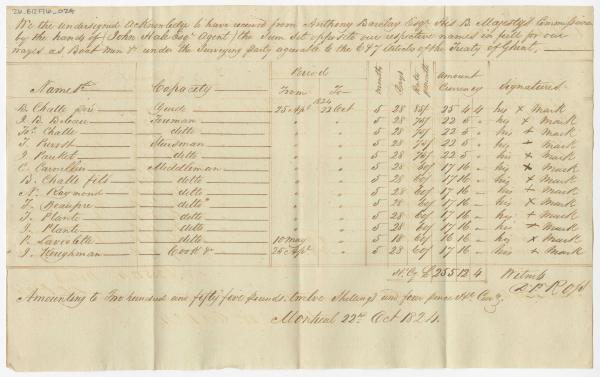 We the undersigned Acknowledge to have received from Anthony Barclay Esqr. His B. Majesty's Commissioner
by the hands of (John Hale Esqr Agent) the Sum set opposite our respective names in full for our
wages as Boat men &c under the Surveying party agreeable to the 6 & 7 Articles of the Treaty of Ghent.
Period
Names &c Capacity From To month Days Rate pr month amount Currency Signatures
1824
B. Chatte père Guide 25 Apl 22 Oct 5 28 85f 25 4 4 his x mark
J. B. Foreman " " 5 28 75f 22 5 " his x mark
Chatte ditto " " 5 28 75f 22 5 " his + mark
Steersman " " 5 28 75f 22 5 " his x mark
J. ditto " " 5 28 75f 22 5 " his x mark
Middleman " " 5 28 60f 17 16 " his x mark
B. Chatte fils ditto " " 5 28 60f 17 16 " his + mark
A. Raymond ditto " " 5 28 60f 17 16 " his + mark
Beaupre ditto " " 5 28 60f 17 16 " his x mark
J. Plante ditto " " 5 28 60f 17 16 " his + mark
J. Plante ditto " " 5 28 60f 17 16 " his + mark
ditto 10 May " 5 18 60f 16 16 " his x mark
J. Cook &c 25 Apl " 5 28 60f 17 16 " his x mark
H. Cy £ 255 12 4 Witness
Amounting to Two hundred and fifty five pounds, twelve Shillings and four pence Hx Curry.
Montreal 22nd Oct 1824.